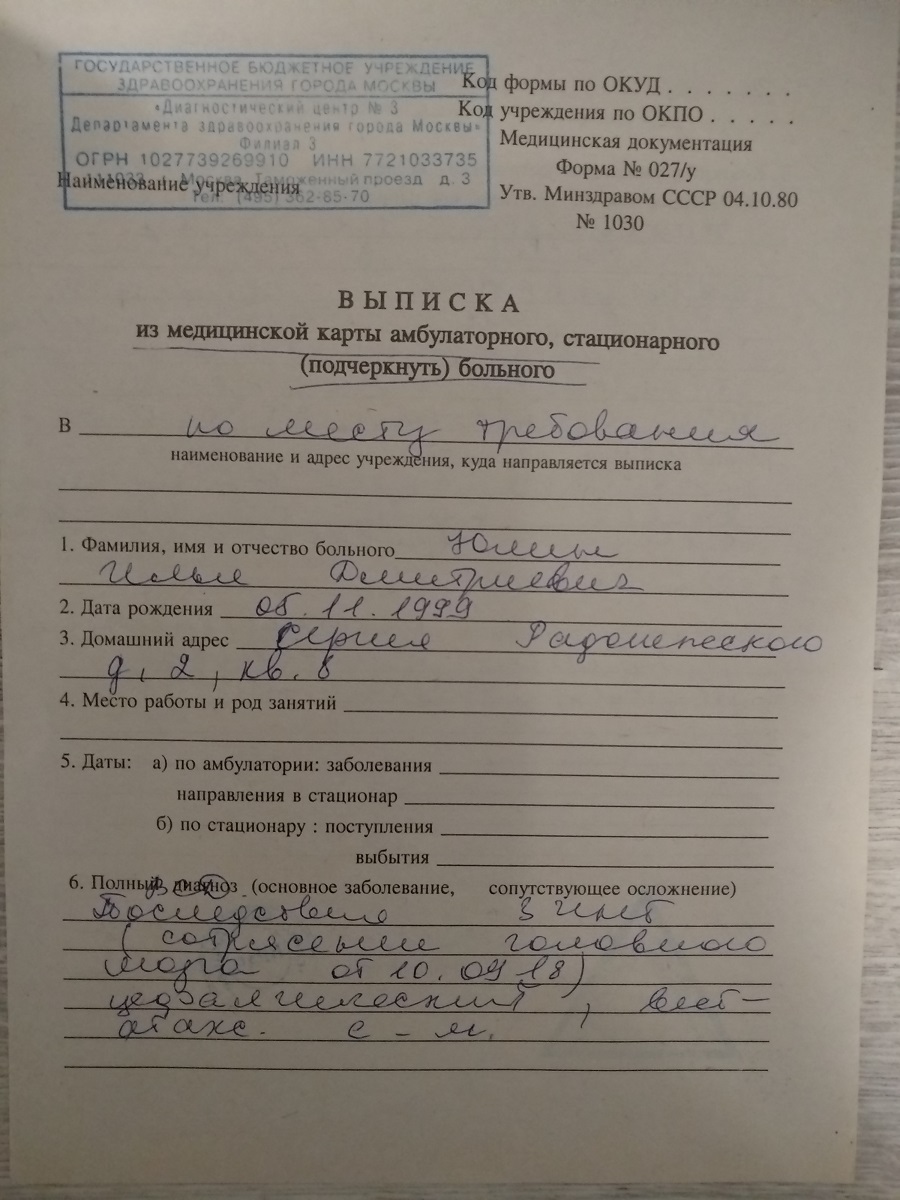 ГОСУДАРСТВЕННОЕ БЮДЖЕТНОЕ УЧРЕЖДЕНИЕ
ЗДРАВООХРАНЕНИЯ ГОРОДА МОСКВЫ
«Диагностический центр № 3
Департамента здравоохранения города Москвы»
Филиал 3
ОГРН 1027739269910 ИНН 7721033735
г. Москва, Таможенный проезд д. 3
Тел. (495) 362-85-70
Наименование учреждения
Код формы по ОКУД . . . . . . .
Код учреждения по ОКПО . . . . .
Медицинская документация
Форма № 027/у
Утв. Минздравом СССР 04.10.80
№ 1030
ВЫПИСКА
из медицинской карты амбулаторного, стационарного
(подчеркнуть) больного
В по месту требования
наименование и адрес учреждения, куда направляется выписка
1. Фамилия, имя и отчество больного
Илье Дмитриевич
2. Дата рождения 05.11.1999
3. Домашний адрес Сергия Радонежского
д. 2, кв. 8
4. Место работы и род занятий
5. Даты: а) по амбулатории: заболевания
направления в стационар
б) по стационару : поступления
выбытия
6. Полный диагноз (основное заболевание, сопутствующее осложнение)
Последствия ЗЧМТ
(сотрясение головного
мозга от 10.09.18)
цефалгический, вест-
атакс. с-м.